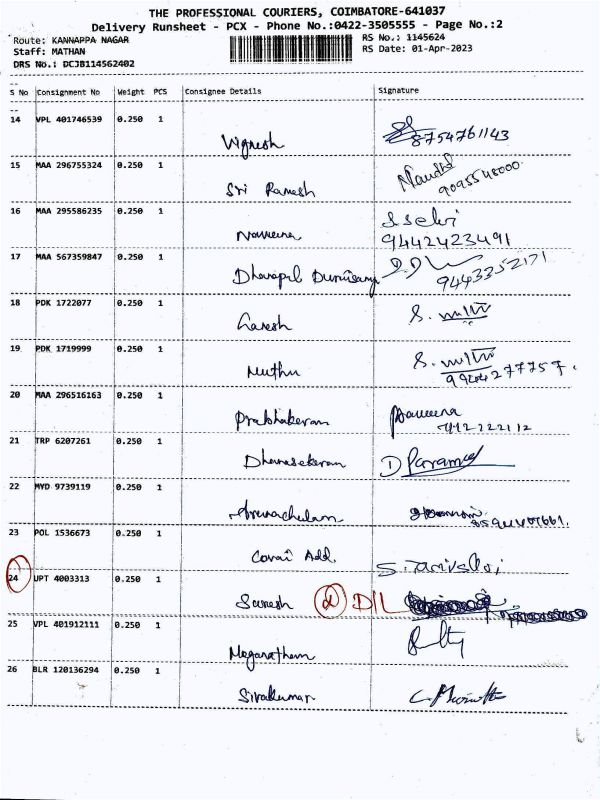 THE PROFESSIONAL COURIERS, COIMBATORE-641037
Delivery Runsheet - PCX - Phone No.:0422-3505555 - Page No.:2
Route: KANNAPPA NAGAR
Staff: MATHAN
DRS No.: DCJB114562402
RS No.: 1145624
RS Date: 01-Apr-2023
S No Consignment No Weight PCS Consignee Details Signature
14 VPL 401746539 0.250 1
Vignesh 8754761143
15 MAA 296755324 0.250 1
Sri Ramesh 9095548000
16 MAA 295586235 0.250 1
Naveena S. Selvi
9442423491
17 MAA 567359847 0.250 1
Dhanapal 9443352171
18 PDK 1722077 0.250 1
Ganesh S.
19 PDK 1719999 0.250 1
Muthu S.
20 MAA 296516163 0.250 1
Prabhakaran Naveena
21 TRP 6207261 0.250 1
Dhanasekaran D
22 MYD 9739119 0.250 1
Arunachalam
23 POL 1536673 0.250 1
Covai Add. S.
24 UPT 4003313 0.250 1
Suresh D/L
25 VPL 401912111 0.250 1
26 BLR 120136294 0.250 1
Sivakumar